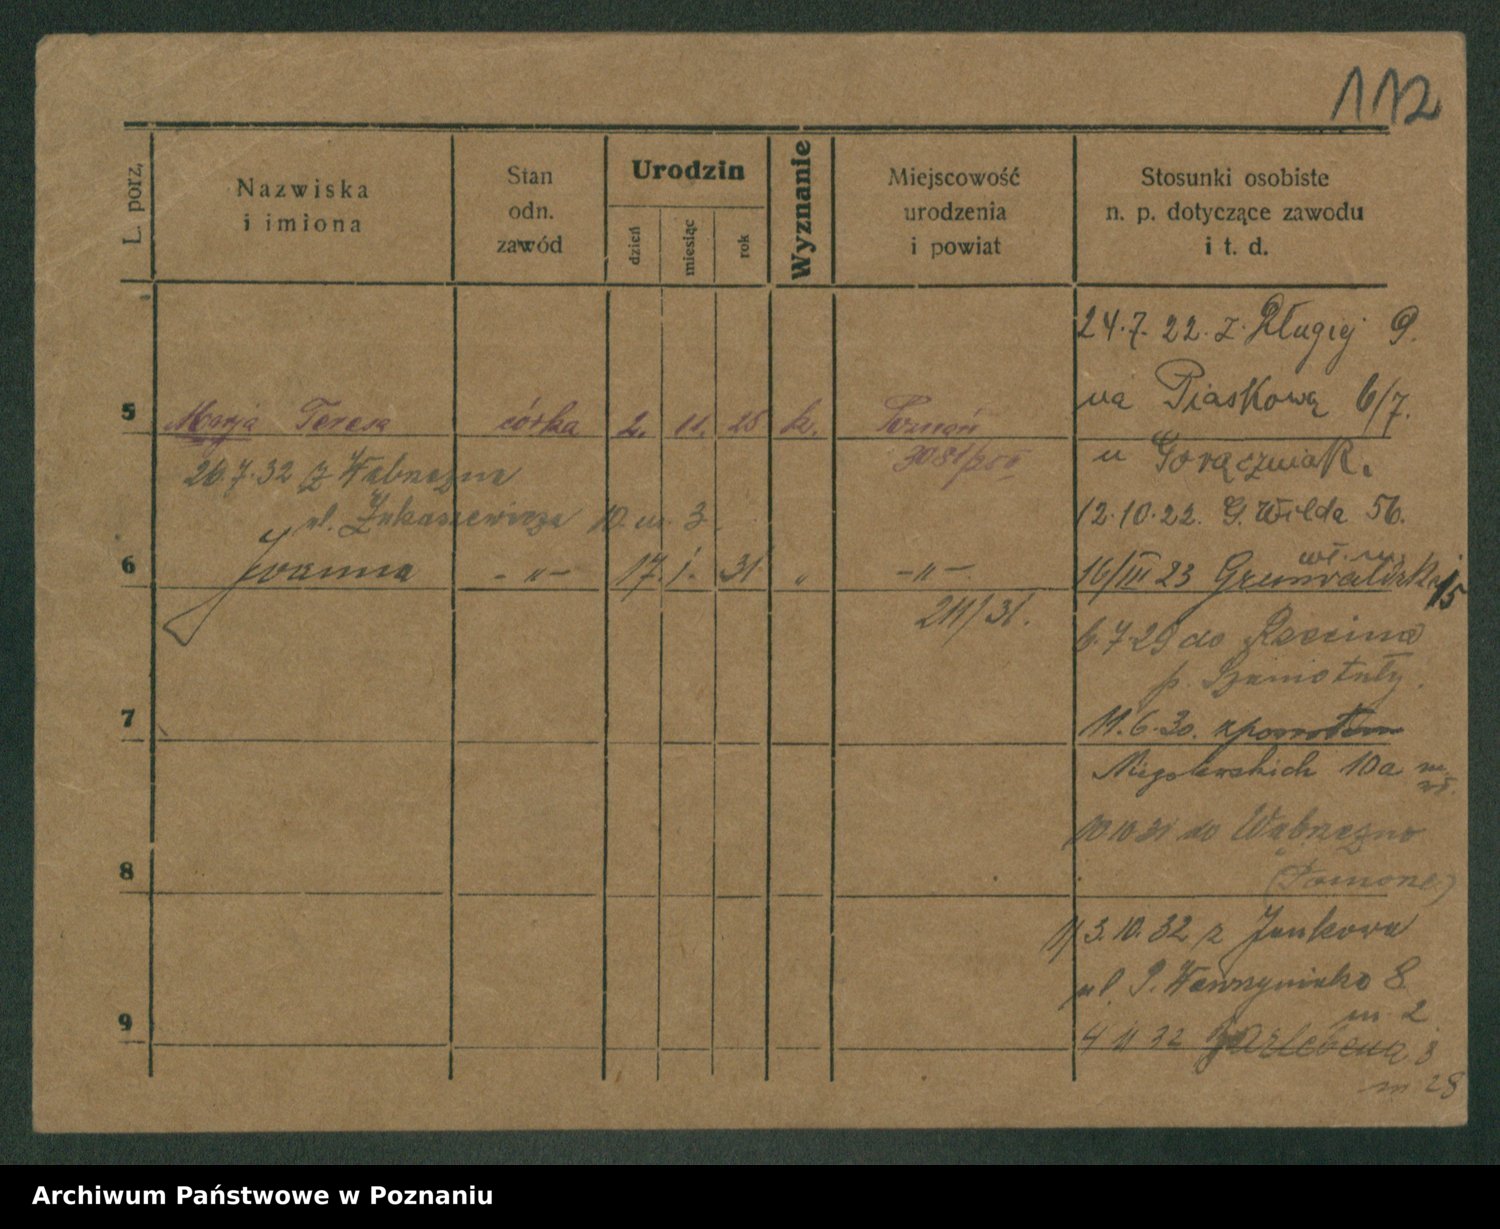 112
L. porz.
Nazwiska
i imiona
Stan
odn.
zawód
Urodzin
dzień
miesiąc
rok
Wyznanie
Miejscowość
urodzenia
i powiat
Stosunki osobiste
n. p. dotyczące zawodu
i t. d.
24.7.22. z Długiej 9.
na Piaskową 6/7.
5 Marja Teresa córka 2. 11. 28 k. Poznań
u Gorączniak.
26.7.32 z Wąbrzeźna
ul. Łukaszewicza 10. m. 3.
12.10.22. G. Wilda 56.
6 Joanna -"- 17. 1. 31 " -"-
16/III 23 Grunwaldzka 15
211/31.
6.7.29 do
p. Szamotuły.
7
11.6.30. z powrotem
Niegolewskich 10a
10.10.31 do Wąbrzeźno
8
(Pomorze)
3.10.32 z Jankowa
ul. 8
m. 2
9
4 11 32 3
m 28
Archiwum Państwowe w Poznaniu